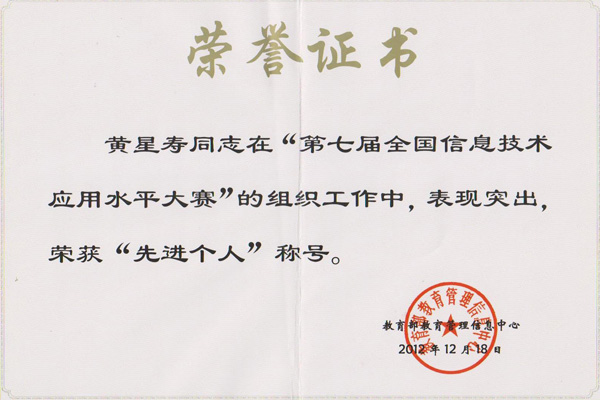 荣誉证书
黄星寿同志在“第七届全国信息技术
应用水平大赛”的组织工作中，表现突出，
荣获“先进个人”称号。
教育部教育管理信息中心
教育部教育管理信息中心
2012年12月18日